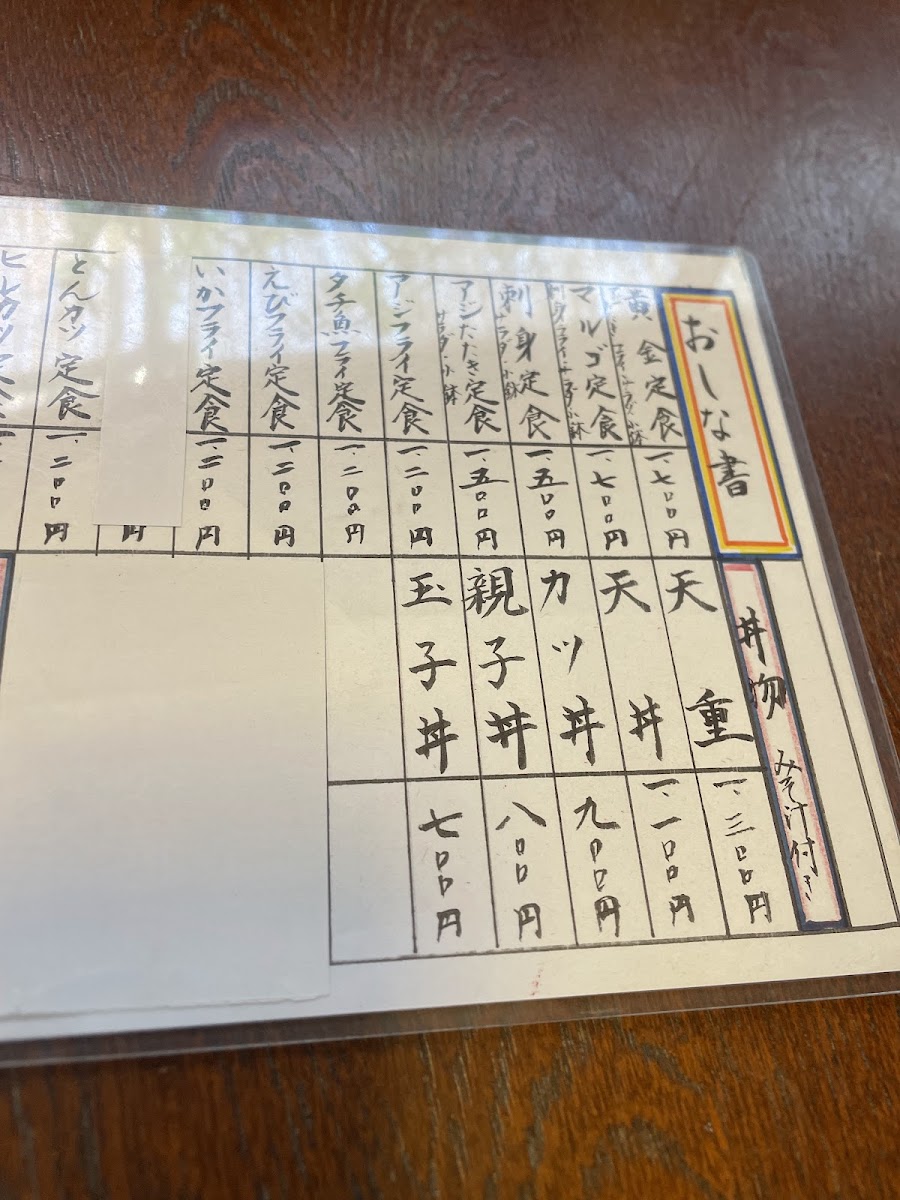 おしな書
黄金定食
一、七〇〇円
マルゴ定食
一、七〇〇円
刺身定食
サラダ・小鉢
一、五〇〇円
アジたたき定食
サラダ・小鉢
一、五〇〇円
アジフライ定食
一、二〇〇円
タチ魚フライ定食
一、二〇〇円
えびフライ定食
一、二〇〇円
いかフライ定食
一、二〇〇円
円
とんカツ定食
一、二〇〇円
ヒレカツ定食
丼物 みそ汁付き
天重
一、三〇〇円
天丼
一、一〇〇円
カツ丼
九〇〇円
親子丼
八〇〇円
玉子丼
七〇〇円